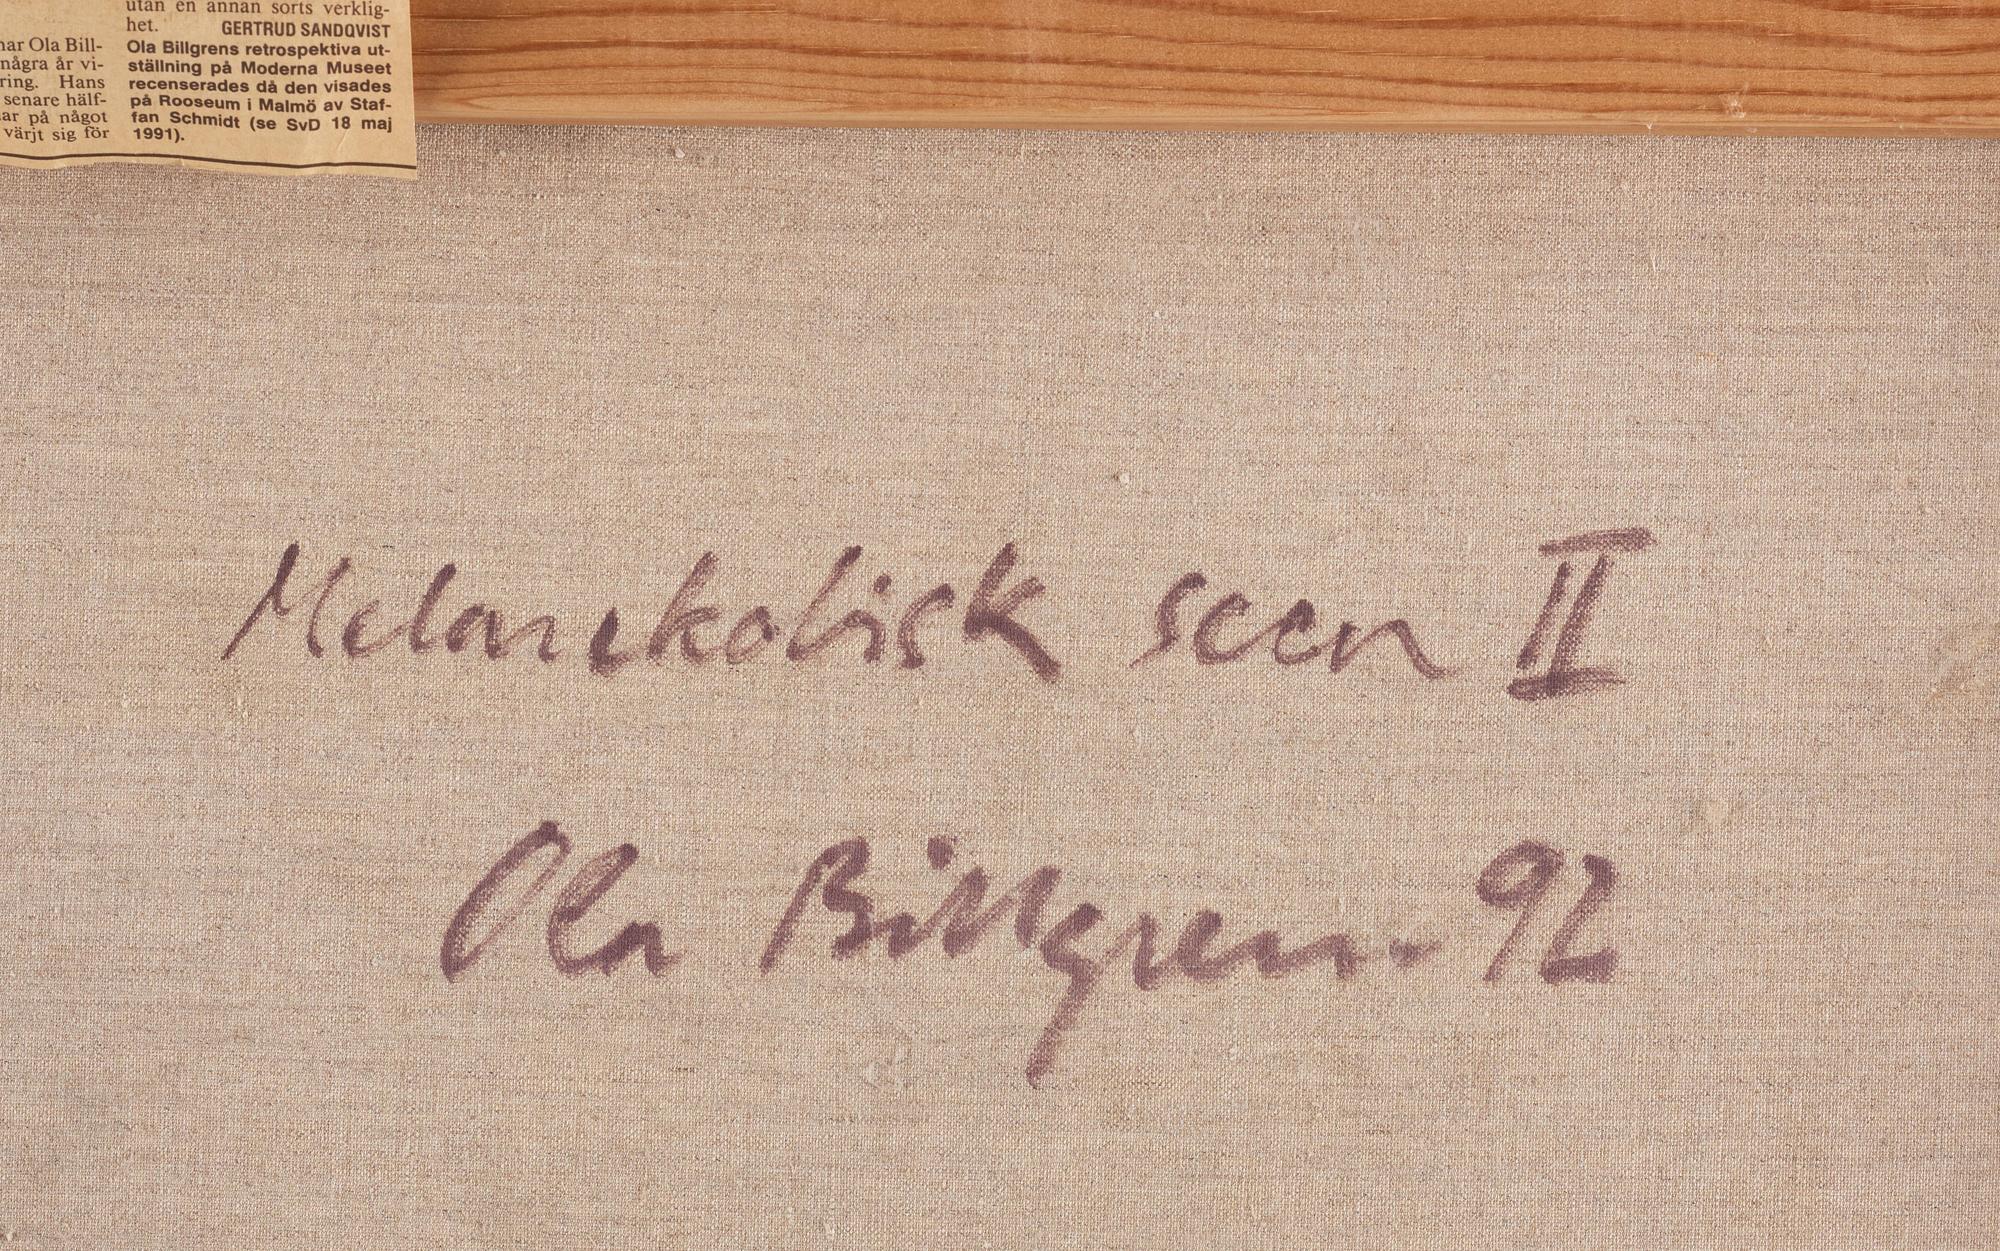 nar Ola Bill-
några år vi-
ring. Hans
senare hälf-
ar på något
värjt sig för
utan en annan sorts verklig-
het. GERTRUD SANDQVIST
Ola Billgrens retrospektiva ut-
ställning på Moderna Museet
recenserades då den visades
på Rooseum i Malmö av Staf-
fan Schmidt (se SvD 18 maj
1991).
Melankolisk scen II
Ola Billgren - 92